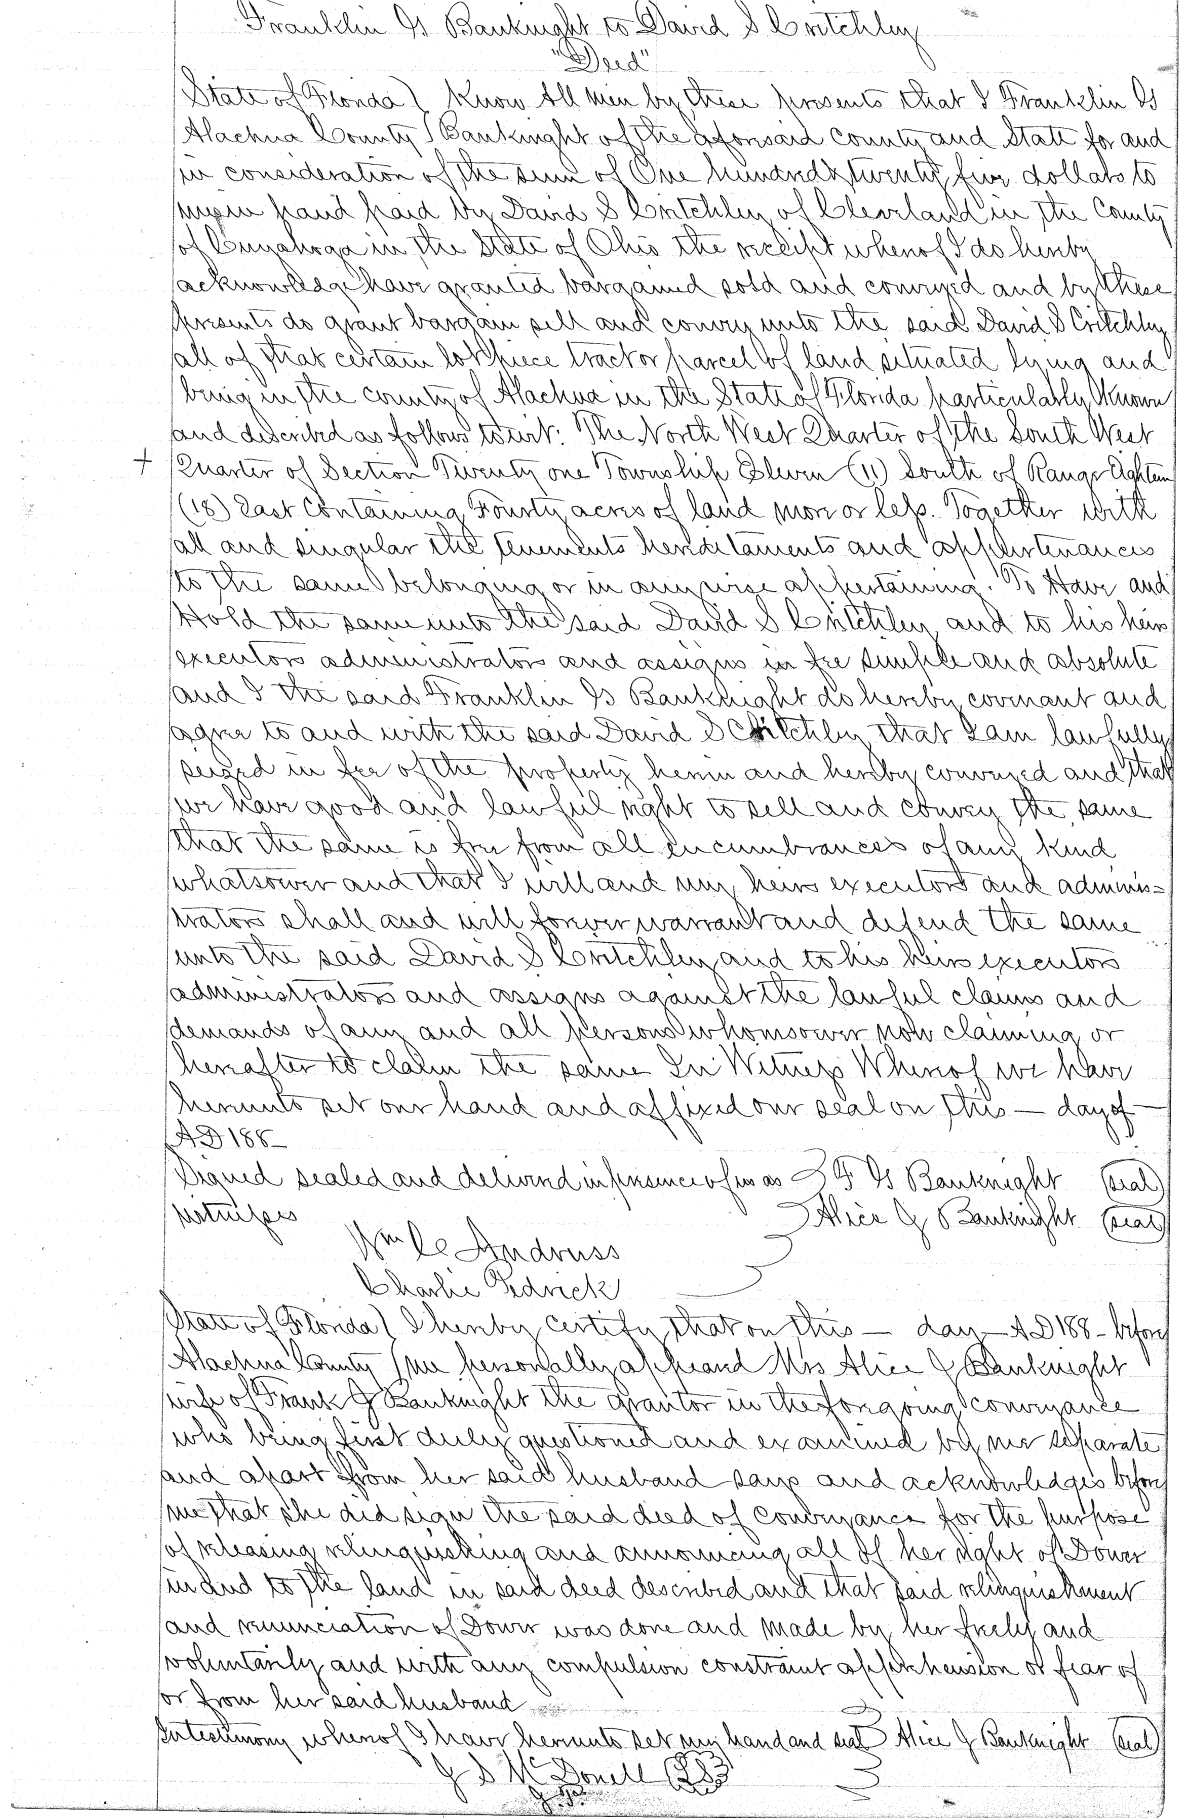 Franklin G Banknight to David S Critchley
"Deed"
State of Florida ) Know All Men by these presents that I Franklin G
Alachua County ) Banknight of the aforesaid county and State for and
in consideration of the sum of One hundred & twenty five dollars to
me in hand paid by David S Critchley of Cleveland in the County
of Cuyahoga in the State of Ohio the receipt whereof I do hereby
acknowledge have granted bargained sold and conveyed and by these
presents do grant bargain sell and convey unto the said David S Critchley
all of that certain lot piece tract or parcel of land situated lying and
being in the county of Alachua in the State of Florida particularly Known
and described as follows towit: The North West Quarter of the South West
+ Quarter of Section Twenty one Township Eleven (11) South of Range Eighteen
(18) East Containing Fourty acres of land more or less. Together with
all and singular the tenements hereditaments and appurtenances
to the same belonging or in anywise appertaining. To Have and
Hold the same unto the said David S Critchley and to his heirs
executors administrators and assigns in fee simple and absolute
and I the said Franklin G Banknight do hereby covenant and
agree to and with the said David S Critchley that I am lawfully
seized in fee of the property herein and hereby conveyed and that
we have good and lawful right to sell and convey the same
that the same is free from all encumbrances of any kind
whatsoever and that I will and my heirs executors and adminis=
trators shall and will forever warrant and defend the same
unto the said David S Critchley and to his heirs executors
administrators and assigns against the lawful claims and
demands of any and all persons whomsoever now claiming or
hereafter to claim the same In Witness Whereof we have
hereunto set our hand and affixed our seal on this — day of —
AD 188-
Signed sealed and delivered in presence of us as F G Banknight (seal)
witnesses Alice J Banknight (seal)
Wm C Andruss
Charlie Pedrick
State of Florida ) I hereby certify that on this — day — AD 188- before
Alachua County ) me personally appeared Mrs Alice J Banknight
wife of Frank G Banknight the grantor in the foregoing conveyance
who being first duly questioned and examined by me separate
and apart from her said husband says and acknowledges before
me that she did sign the said deed of conveyance for the purpose
of releasing relinquishing and announcing all of her right of Dower
in and to the land in said deed described and that said relinquishment
and renunciation of Dower was done and made by her freely and
voluntarily and with any compulsion constraint apprehension or fear of
or from her said husband
In testimony whereof I have hereunto set my hand and seal Alice J Banknight (seal)
J S McDonell (LS)